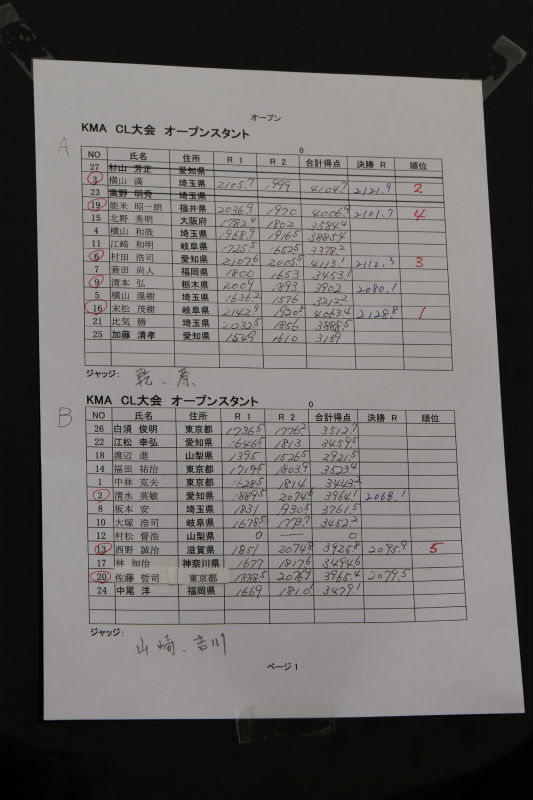 オープン
KMA CL大会 オープンスタント
0
A
NO 氏名 住所 R 1 R 2 合計得点 決勝 R 順位
27 杉山 芳正 愛知県
3 横山 満 埼玉県 2105.7 1999 4104.7 2121.9 2
23 高野 明秀 埼玉県
19 能米 昭一朗 福井県 2036.9 1970 4006.9 2101.7 4
15 北野 秀明 大阪府 1782.4 1802 3584.4
4 横山 和哉 埼玉県 1968.9 1916.5 3885.4
11 江崎 和明 岐阜県 1725.5 1652.5 3378.2
6 村田 浩司 愛知県 2107.6 2005.5 4113.1 2112.3 3
7 簑田 尚人 福岡県 1800 1653 3453.1
9 清本 弘 栃木県 2009 1893 3902 2080.1
5 横山 滉樹 埼玉県 1636.2 1576 3212.2
16 末松 茂樹 岐阜県 2142.9 1920.5 4063.4 2128.8 1
21 比気 勝 埼玉県 2032.5 1856 3888.5
25 加藤 清孝 愛知県 1549 1610 3159
ジャッジ: 乾、原
B
KMA CL大会 オープンスタント
0
NO 氏名 住所 R 1 R 2 合計得点 決勝 R 順位
26 白須 俊明 東京都 1736.5 1776.2 3512.7
22 江松 幸弘 愛知県 1646.5 1813 3459.5
18 渡辺 進 山梨県 1395 1526.5 2921.5
14 福田 祐治 東京都 1719.5 1803.9 3523.4
1 中林 克夫 東京都 1628.5 1814 3443.2
2 清水 英敏 愛知県 1889.5 2074.6 3964.1 2068.1
8 坂本 安 埼玉県 1831 1930.5 3761.5
10 大塚 浩司 岐阜県 1678.5 1773.7 3452.2
12 村松 督浩 山梨県 0 — 0
13 西野 誠治 滋賀県 1851 2074.8 3925.8 2095.9 5
17 林 知治 神奈川県 1677 1817.6 3494.6
20 佐藤 哲司 東京都 1888.5 2076.9 3965.4 2079.5
24 中尾 洋 福岡県 1669 1810.1 3479.1
ジャッジ:
山崎、吉川
ページ 1